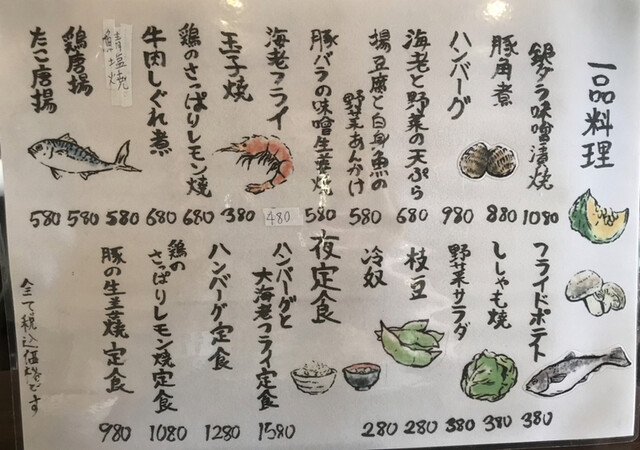 一品料理
銀ダラ味噌漬焼
1080
豚角煮
880
ハンバーグ
980
海老と野菜の天ぷら
680
揚豆腐と白身魚の
野菜あんかけ
580
豚バラの味噌生姜焼
580
海老フライ
480
玉子焼
380
鶏のさっぱりレモン焼
680
牛肉しぐれ煮
680
鯖塩焼
580
鶏唐揚
580
たこ唐揚
580
フライドポテト
380
ししゃも焼
380
野菜サラダ
380
枝豆
280
冷奴
280
夜定食
ハンバーグと
大海老フライ定食
1580
ハンバーグ定食
1280
鶏の
さっぱりレモン焼定食
1080
豚の生姜焼定食
980
全て税込価格です